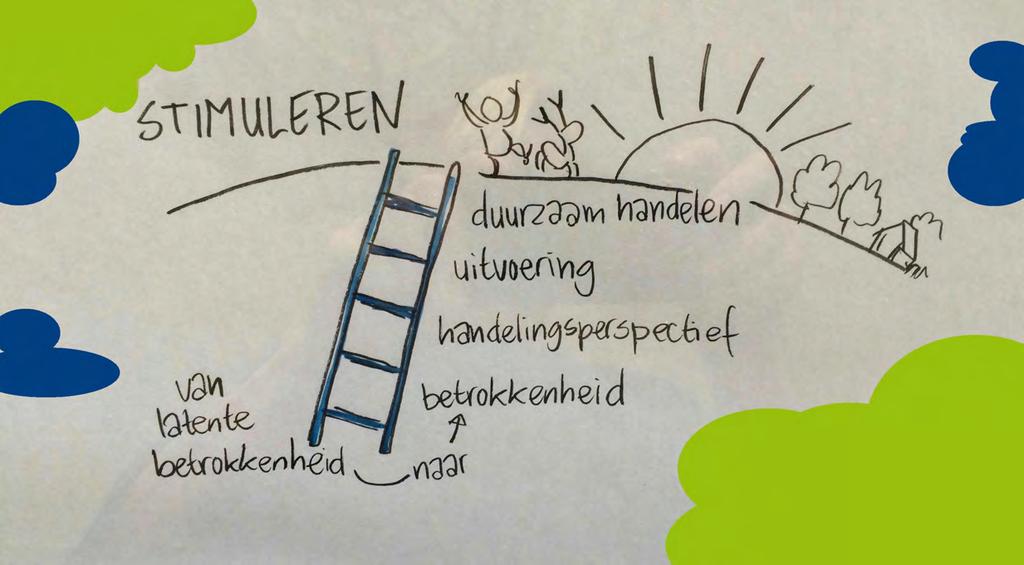 STIMULEREN
duurzaam handelen
uitvoering
handelingsperspectief
betrokkenheid
van
latente
betrokkenheid
naar